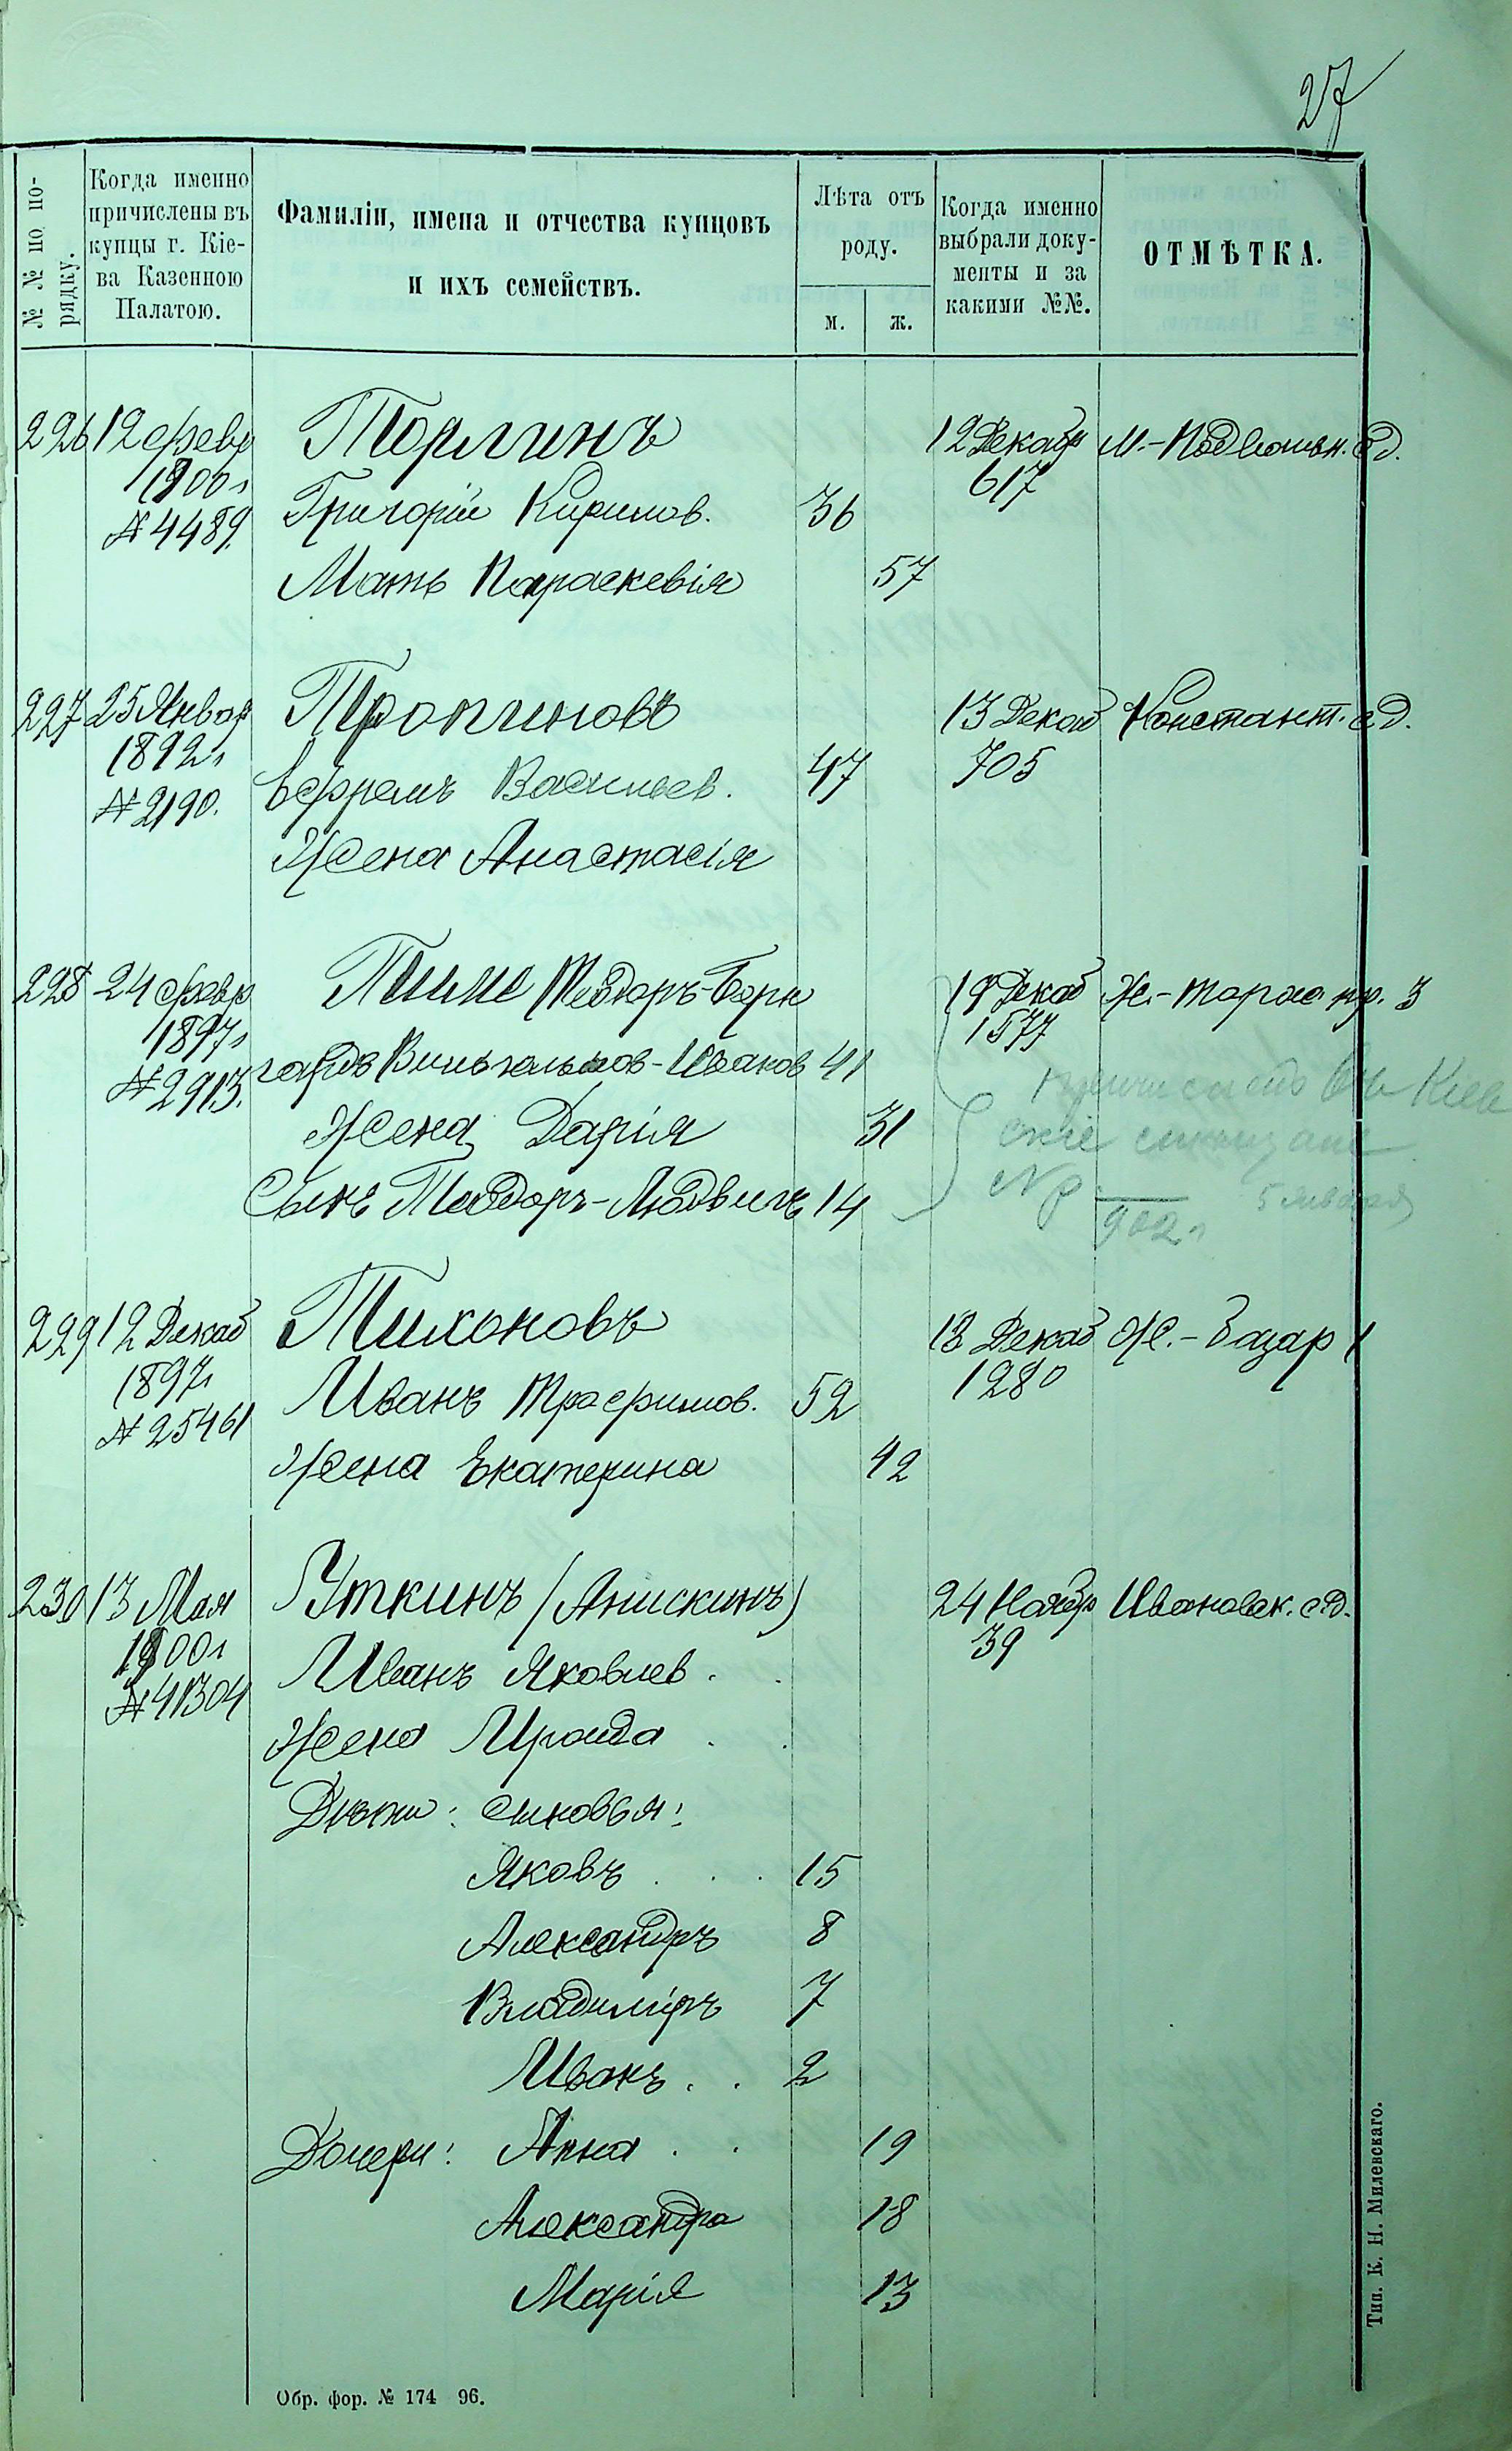 27
№ № по по-
рядку.
Когда именно
причислены въ
купцы г. Кіе-
ва Казенною
Палатою.
Фамиліи, имена и отчества купцовъ
и ихъ семействъ.
Лѣта отъ
роду.
м. ж.
Когда именно
выбрали доку-
менты и за
какими №№.
ОТМѢТКА.
226 12 февр Торлинъ 12 Декабр
1900 г 617
№ 4489. Григорій Кирилов. 36
Мать Параскевія 57
227 25 Январ Тропиновъ 13 Декаб Констант. ед.
1892 г 705
№ 2190. Ефремъ Васильев. 47
Жена Анастасія
228 24 февр Тиме Теодоръ-Берн 19 Декаб Ж.-Тарас пр. 3
1897 г 1577
№ 2913. гардъ Вильгельмов-Исаков 41
Жена Дарія 31
Сынъ Теодоръ-Людвигъ 14
902 г 5 января
229 12 Декаб Тихоновъ 18 Декаб Ж.-Базар 1
1897 г 1280
№ 25461 Иванъ Трофимов. 52
Жена Екатерина 42
230 13 Мая Уткинъ (Анискинъ) 24 Ноябр Ивановск. ед.
1900 г 39
№ 41304 Иванъ Яковлев.
Жена Ираида
Дѣти: сыновья:
Яковъ 15
Александръ 8
Владиміръ 7
Иванъ 2
Дочери: Анна 19
Александра 18
Марія 13
Обр. фор. № 174 96.
Тип. К. Н. Милевскаго.